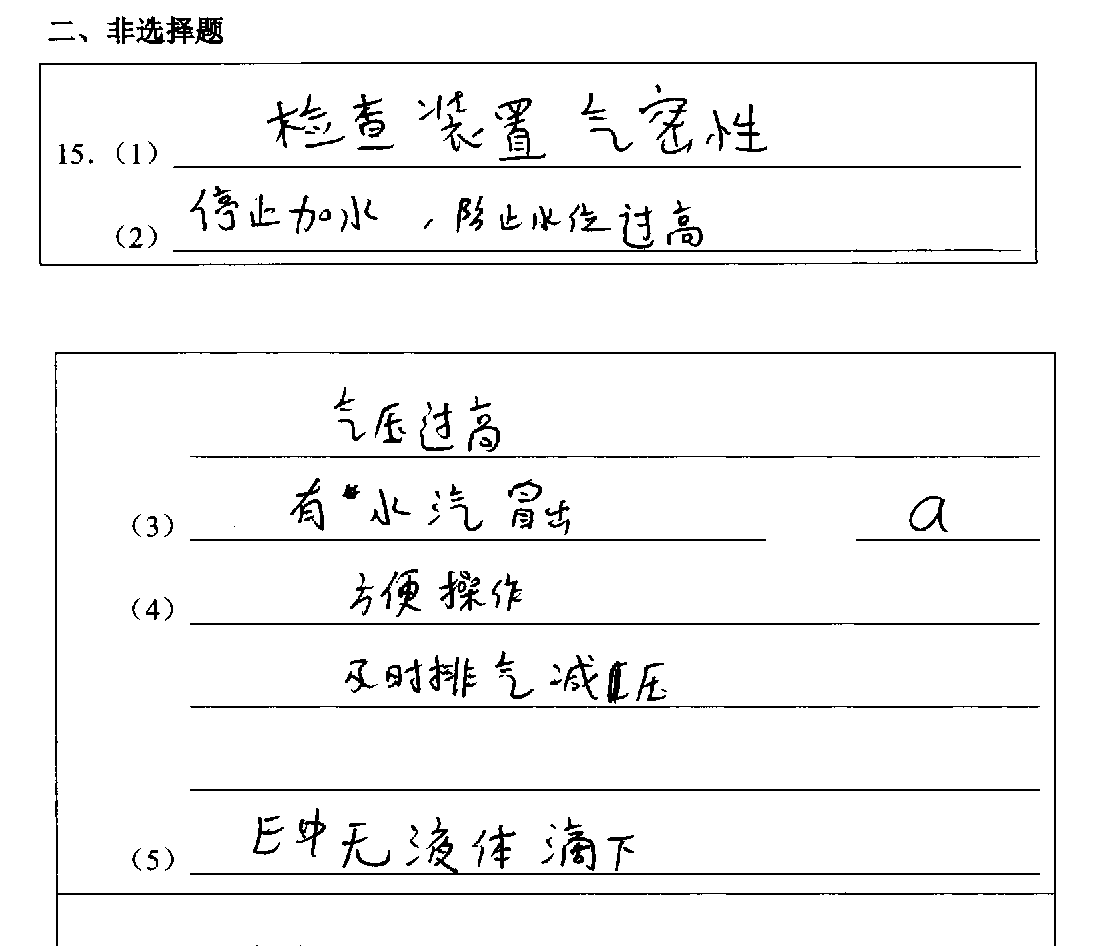 二、非选择题
15.（1） 检查装置气密性
（2） 停止加水，防止水位过高
气压过高
（3） 有水汽冒出 a
（4） 方便操作
及时排气减压
（5） E中无液体滴下